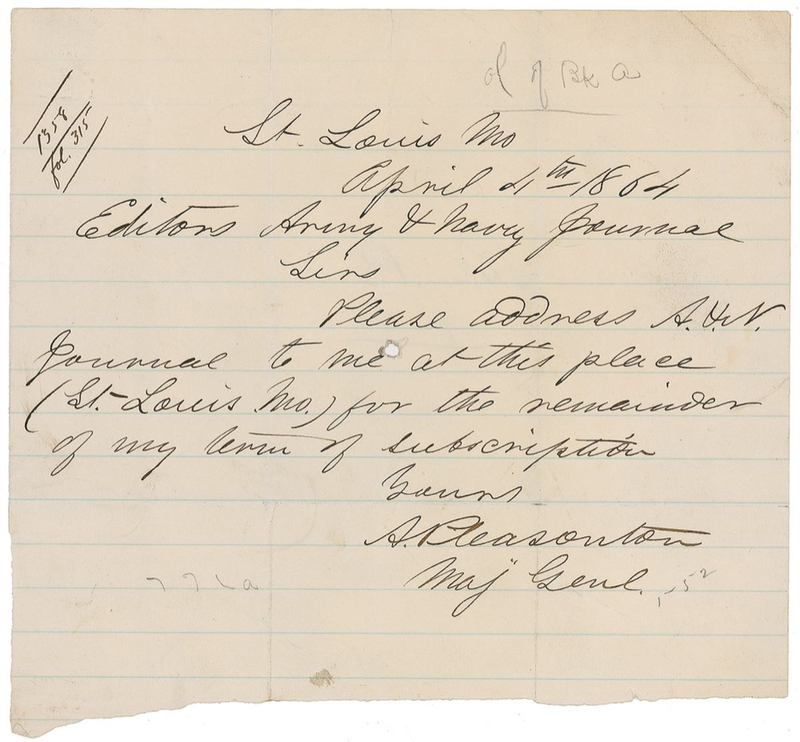 1358
fol. 315
St. Louis Mo
April 4th 1864
Editors Army & Navy Journal
Sirs
Please address A. & N.
Journal to me at this place
(St. Louis Mo.) for the remainder
of my term of subscription
Yours
A. Pleasonton
Maj Genl.